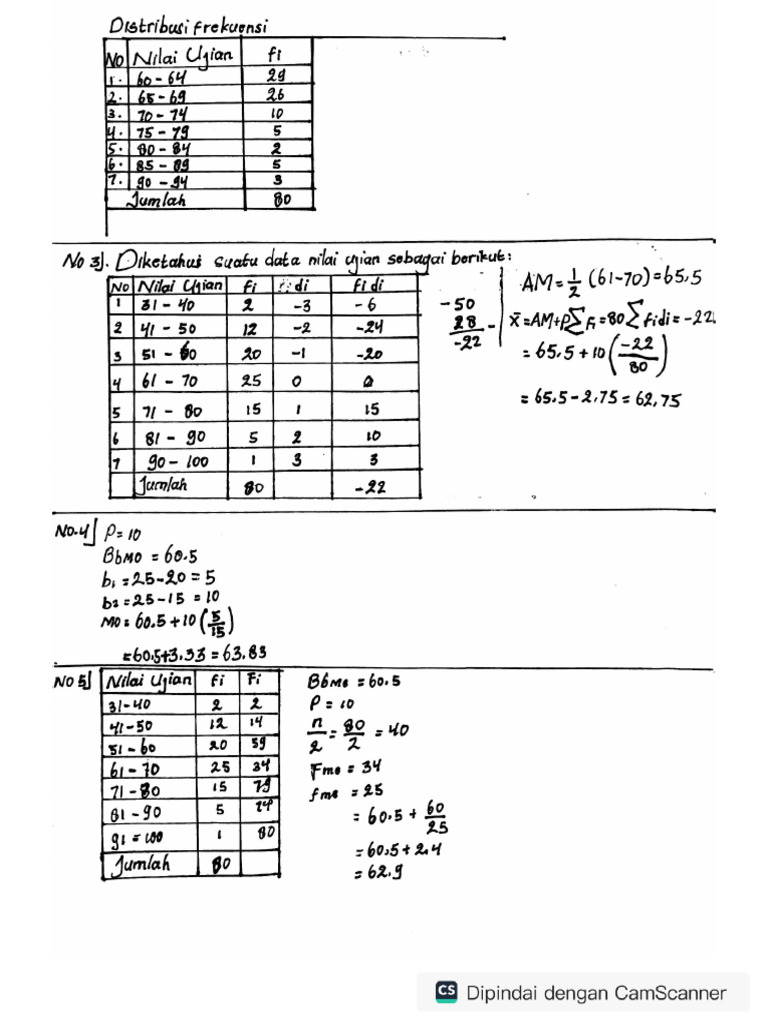 Distribusi frekuensi
No Nilai Ujian fi
1. 60 - 64 29
2. 65 - 69 26
3. 70 - 74 10
4. 75 - 79 5
5. 80 - 84 2
6. 85 - 89 5
7. 90 - 94 3
Jumlah 80
No 3). Diketahui suatu data nilai ujian sebagai berikut:
No Nilai Ujian fi di fi di
1 31 - 40 2 -3 -6
2 41 - 50 12 -2 -24
3 51 - 60 20 -1 -20
4 61 - 70 25 0 0
5 71 - 80 15 1 15
6 81 - 90 5 2 10
7 90 - 100 1 3 3
Jumlah 80 -22
-50
28 -
-22
AM = 1/2 (61-70) = 65,5
x̄ = AM + P Σ Fi = 80 Σ fidi = -22
= 65.5 + 10 (-22/80)
= 65.5 - 2,75 = 62,75
No.4] P = 10
BbMo = 60.5
b1 = 25 - 20 = 5
b2 = 25 - 15 = 10
Mo = 60.5 + 10 (5/15)
= 60,5 + 3.33 = 63.83
No 5] Nilai Ujian fi Fi
31-40 2 2
41-50 12 14
51 - 60 20 59
61 - 70 25 34
71 - 80 15 79
81 - 90 5
91 = 100 1 80
Jumlah 80
BbMe = 60.5
P = 10
n/2 = 80/2 = 40
Fme = 34
fme = 25
= 60.5 + 60/25
= 60,5 + 2.4
= 62.9
CS Dipindai dengan CamScanner